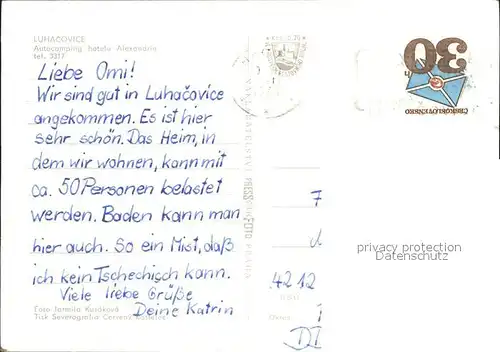 LUHAČOVICE
Autocamping hotelu Alexandria
tel. 3317
Liebe Omi!
Wir sind gut in Luhačovice
angekommen. Es ist hier
sehr schön. Das Heim, in
dem wir wohnen, kann mit
ca. 50 Personen belastet
werden. Baden kann man
hier auch. So ein Mist, daß
ich kein Tschechisch kann.
Viele liebe Grüße
Deine Katrin
Foto Jarmila Kutáková
Tisk Severografia Červený Kostelec
30 h
ČESKOSLOVENSKO
privacy protection
Datenschutz
7
d
4212
DI